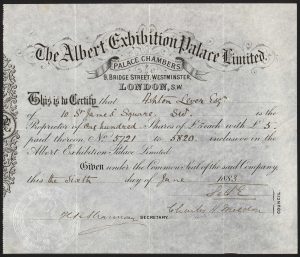 The Albert Exhibition Palace Limited.
PALACE CHAMBERS
9, BRIDGE STREET, WESTMINSTER,
LONDON, S.W.
This is to Certify that Ashton Lever Esqre
of 10 St James's Square, S.W. is the
Proprietor of One hundred Shares of £ each with £ 5
paid thereon Nos 5721 to 5820 inclusive in the
Albert Exhibition Palace Limited.
Given under the Common Seal of the said Company
this the Sixth day of June 1883
SECRETARY.
Charles
COUNCIL